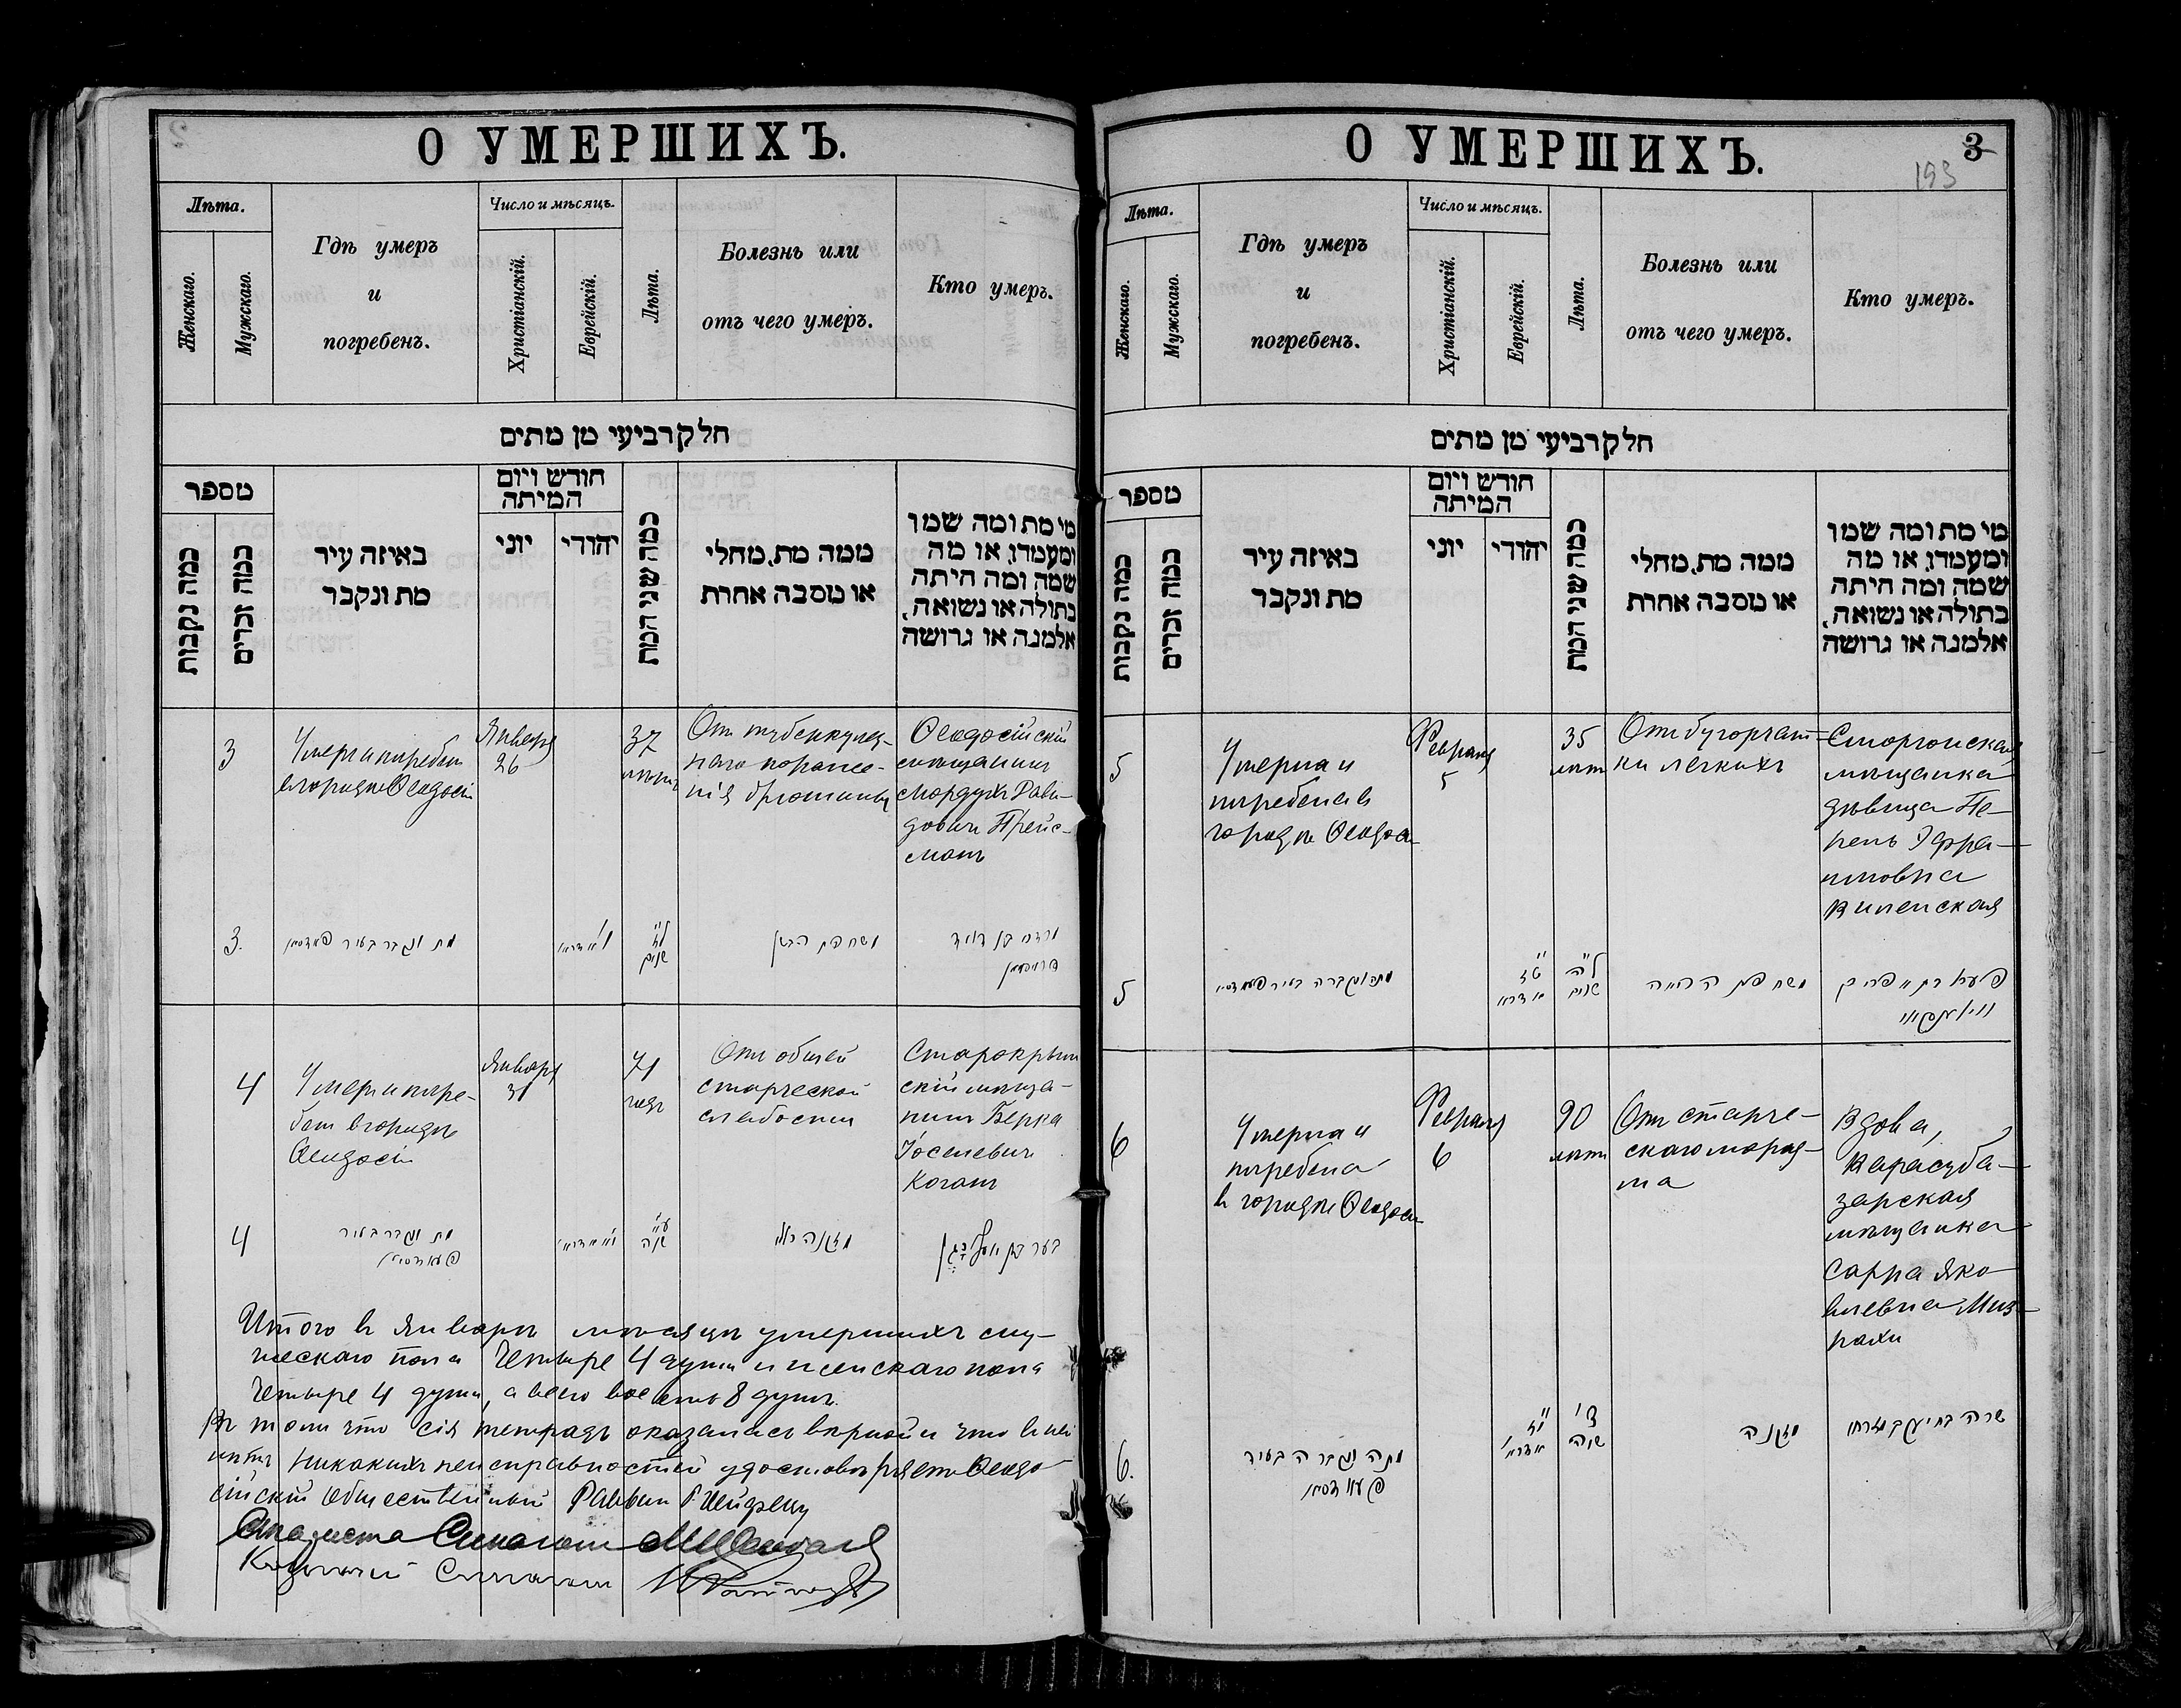 О УМЕРШИХЪ.
Лѣта.
Женскаго.
Мужскаго.
Гдѣ умеръ
и
погребенъ.
Число и мѣсяцъ.
Христіанскій.
Еврейскій.
Лѣта.
Болезнь или
отъ чего умеръ.
Кто умеръ.
חלק רביעי מן מתים
מספר
כמה נקבות
כמה זכרים
באיזה עיר
מת ונקבר
חודש ויום
המיתה
יוני
יהודי
כמה שני המת
ממה מת, מחלי
או מסבה אחרת
מי מת ומה שמו
ומעמדו, או מה
שמה ומה היתה
בתולה או נשואה,
אלמנה או גרושה
3
Умеръ и погребенъ
въ городѣ Ѳеодосіи
Января
26
37
лѣтъ
От туберкулез-
наго пораже-
нія брюшины
Ѳеодосійскій
мѣщанинъ
Мордухъ Дави-
довичъ Прейс-
манъ
3.
מת ונקבר בעיר
ל"ז
שנים
משחפת הבטן
מרדכי בן דויד
פרייסמאן
4
Умеръ и погре-
бенъ въ городѣ
Ѳеодосіи
Января
31
71
годъ
От общей
старческой
слабости
Старокрым
скій мѣща-
нинъ Берка
Іоселевичъ
Коганъ
4
מת ונקבר בעיר
ע"א
שנה
מזקנה
בער בן יוסף כהן
Итого въ Январѣ мѣсяцѣ умершихъ му-
жескаго пола четыре 4 души и женскаго пола
четыре 4 души, а всего восемь 8 душъ.
Въ томъ что сія тетрадь оказалась вѣрной и что въ ней
нѣтъ никакихъ неисправностей удостовѣряетъ Ѳеодо-
сійскій Общественный Раввинъ
Староста Синагоги
Казначей Синагоги
О УМЕРШИХЪ.
3
193
Лѣта.
Женскаго.
Мужскаго.
Гдѣ умеръ
и
погребенъ.
Число и мѣсяцъ.
Христіанскій.
Еврейскій.
Лѣта.
Болезнь или
отъ чего умеръ.
Кто умеръ.
חלק רביעי מן מתים
מספר
כמה נקבות
כמה זכרים
באיזה עיר
מת ונקבר
חודש ויום
המיתה
יוני
יהודי
כמה שני המת
ממה מת, מחלי
או מסבה אחרת
מי מת ומה שמו
ומעמדו, או מה
שמה ומה היתה
בתולה או נשואה,
אלמנה או גרושה
5
Умерла и
погребена въ
городѣ Ѳеодосіи
Февраля
5
35
лѣтъ
От бугорчат-
ки легкихъ
Сморгонская
мѣщанка
дѣвица Пе-
рель Эфра-
имовна
Виленская
5
מתה ונקברה בעיר
ל"ה
שנים
משחפת הריאה
6
Умерла и
погребена
въ городѣ Ѳеодосіи
Февраля
6
90
лѣтъ
От старче-
скаго мараз-
ма
Вдова,
Карасуба-
зарская
мѣщанка
Сарра Яко-
влевна Миз-
рахи
6.
מתה ונקברה בעיר
צ'
שנה
מזקנה
שרה בת יעקב מזרחי